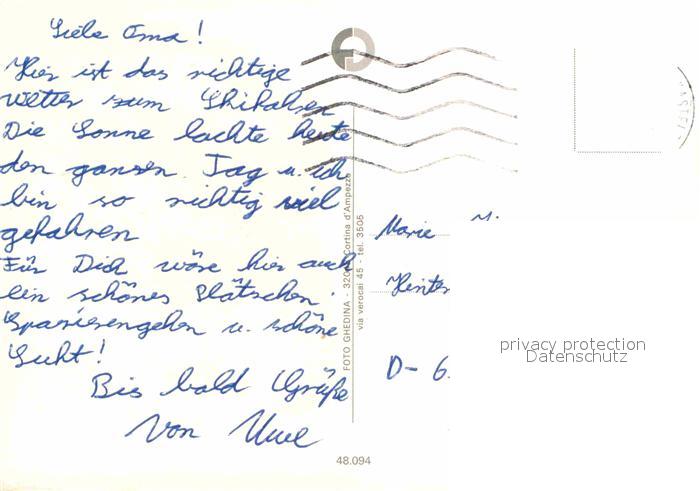 Liebe Oma!
Hier ist das richtige
Wetter zum Skifahren
Die Sonne lachte heute
den ganzen Tag u. ich
bin so richtig viel
gefahren
Für Dich wäre hier auch
ein schönes Plätschen.
Spazierengehen u. schöne
Luft!
Bis bald Grüße
von Uwe
FOTO GHEDINA - Cortina d'Ampezzo
via verocai 45 - tel. 3505
Marie M.
D- 6.
privacy protection
Datenschutz
48.094